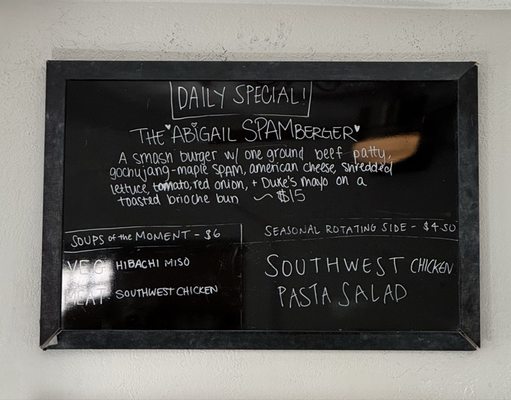 DAILY SPECIAL!
THE ABIGAIL SPAMBERGER
A smash burger w/ one ground beef patty,
gochujang-maple SPAM, american cheese, shredded
lettuce, tomato, red onion, + Duke's mayo on a
toasted brioche bun ~ $15
SOUPS of the MOMENT - $6
VEG HIBACHI MISO
MEAT SOUTHWEST CHICKEN
SEASONAL ROTATING SIDE - $4.50
SOUTHWEST CHICKEN
PASTA SALAD